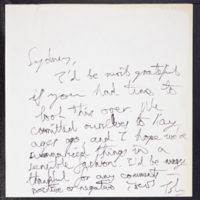 Sydney,
I'd be most grateful
if you had time to
look this over. We
committed ourselves to
ages ago, and I hope we've
organised things in a
sensible fashion. I'd be very
thankful for any comment
positive or negative